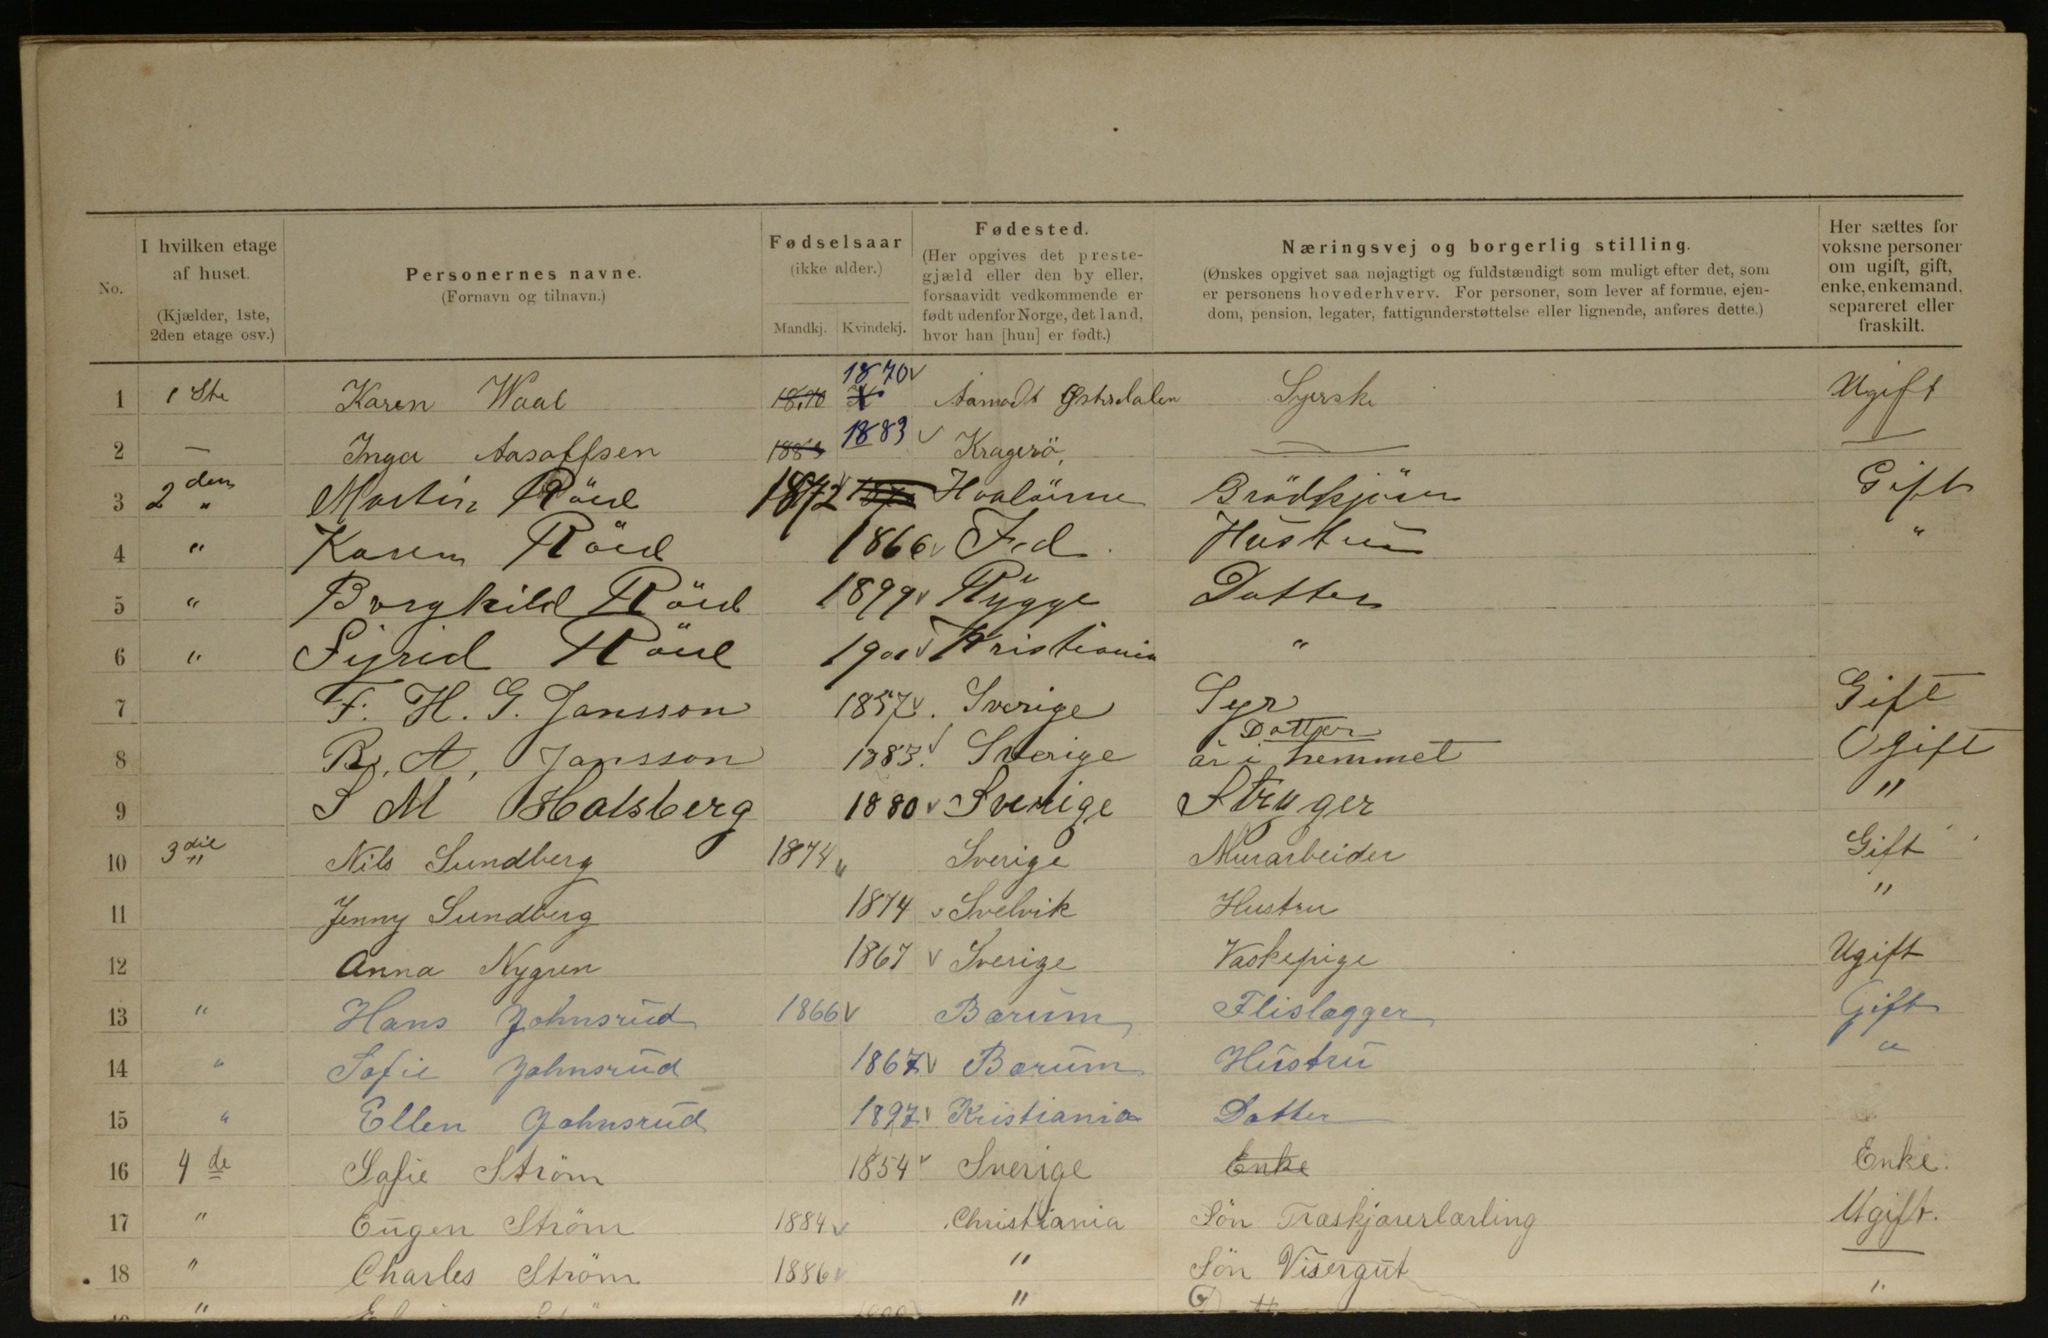 No.
I hvilken etage
af huset.
(Kjælder, 1ste,
2den etage osv.)
Personernes navne.
(Fornavn og tilnavn.)
Fødselsaar
(ikke alder.)
Mandkj. Kvindekj.
Fødested.
(Her opgives det preste-
gjæld eller den by eller,
forsaavidt vedkommende er
født udenfor Norge, det land,
hvor han [hun] er født.)
Næringsvej og borgerlig stilling.
(Ønskes opgivet saa nøjagtigt og fuldstændigt som muligt efter det, som
er personens hovederhverv. For personer, som lever af formue, ejen-
dom, pension, legater, fattigunderstøttelse eller lignende, anføres dette.)
Her sættes for
voksne personer
om ugift, gift,
enke, enkemand,
separeret eller
fraskilt.
1 1 Ste Karen Waal 1870 1870 Aamodt Østerdalen Syerske Ugift
2 — Inga Aasoffsen 1883 1883 Kragerö, — —
3 2den " Martin Röed 1872 Brödkjörer Gift
4 " Karen Röed 1866 Fed. Hustru "
5 " Borghild Röed 1899 Rygge Datter
6 " Sigrid Röed 1901 Kristiania "
7 F. H. G. Jansson 1857. Sverige Syr Gift
8 R. A. Jansson 1883. Sverige Dotter är i hemmet Ogift
9 S M Holsberg 1880 Sverige Stryger "
10 3die " Nils Sundberg 1874 Sverige Murarbeider Gift
11 Jenny Sundberg 1874 Svelvik Hustru "
12 Anna Nygren 1867 Sverige Vaskepige Ugift
13 " Hans Johnsrud 1866 Bærum Flislægger Gift
14 " Sofie Johnsrud 1867 Bærum Hustru "
15 " Ellen Johnsrud 1897 Kristiania Datter
16 4de Sofie Ström 1854 Sverige Enke Enke.
17 " Eugen Ström 1884 Christiania Sön Træskjærerlærling Ugift.
18 " Charles Ström 1886 " Sön Visergut "
" "